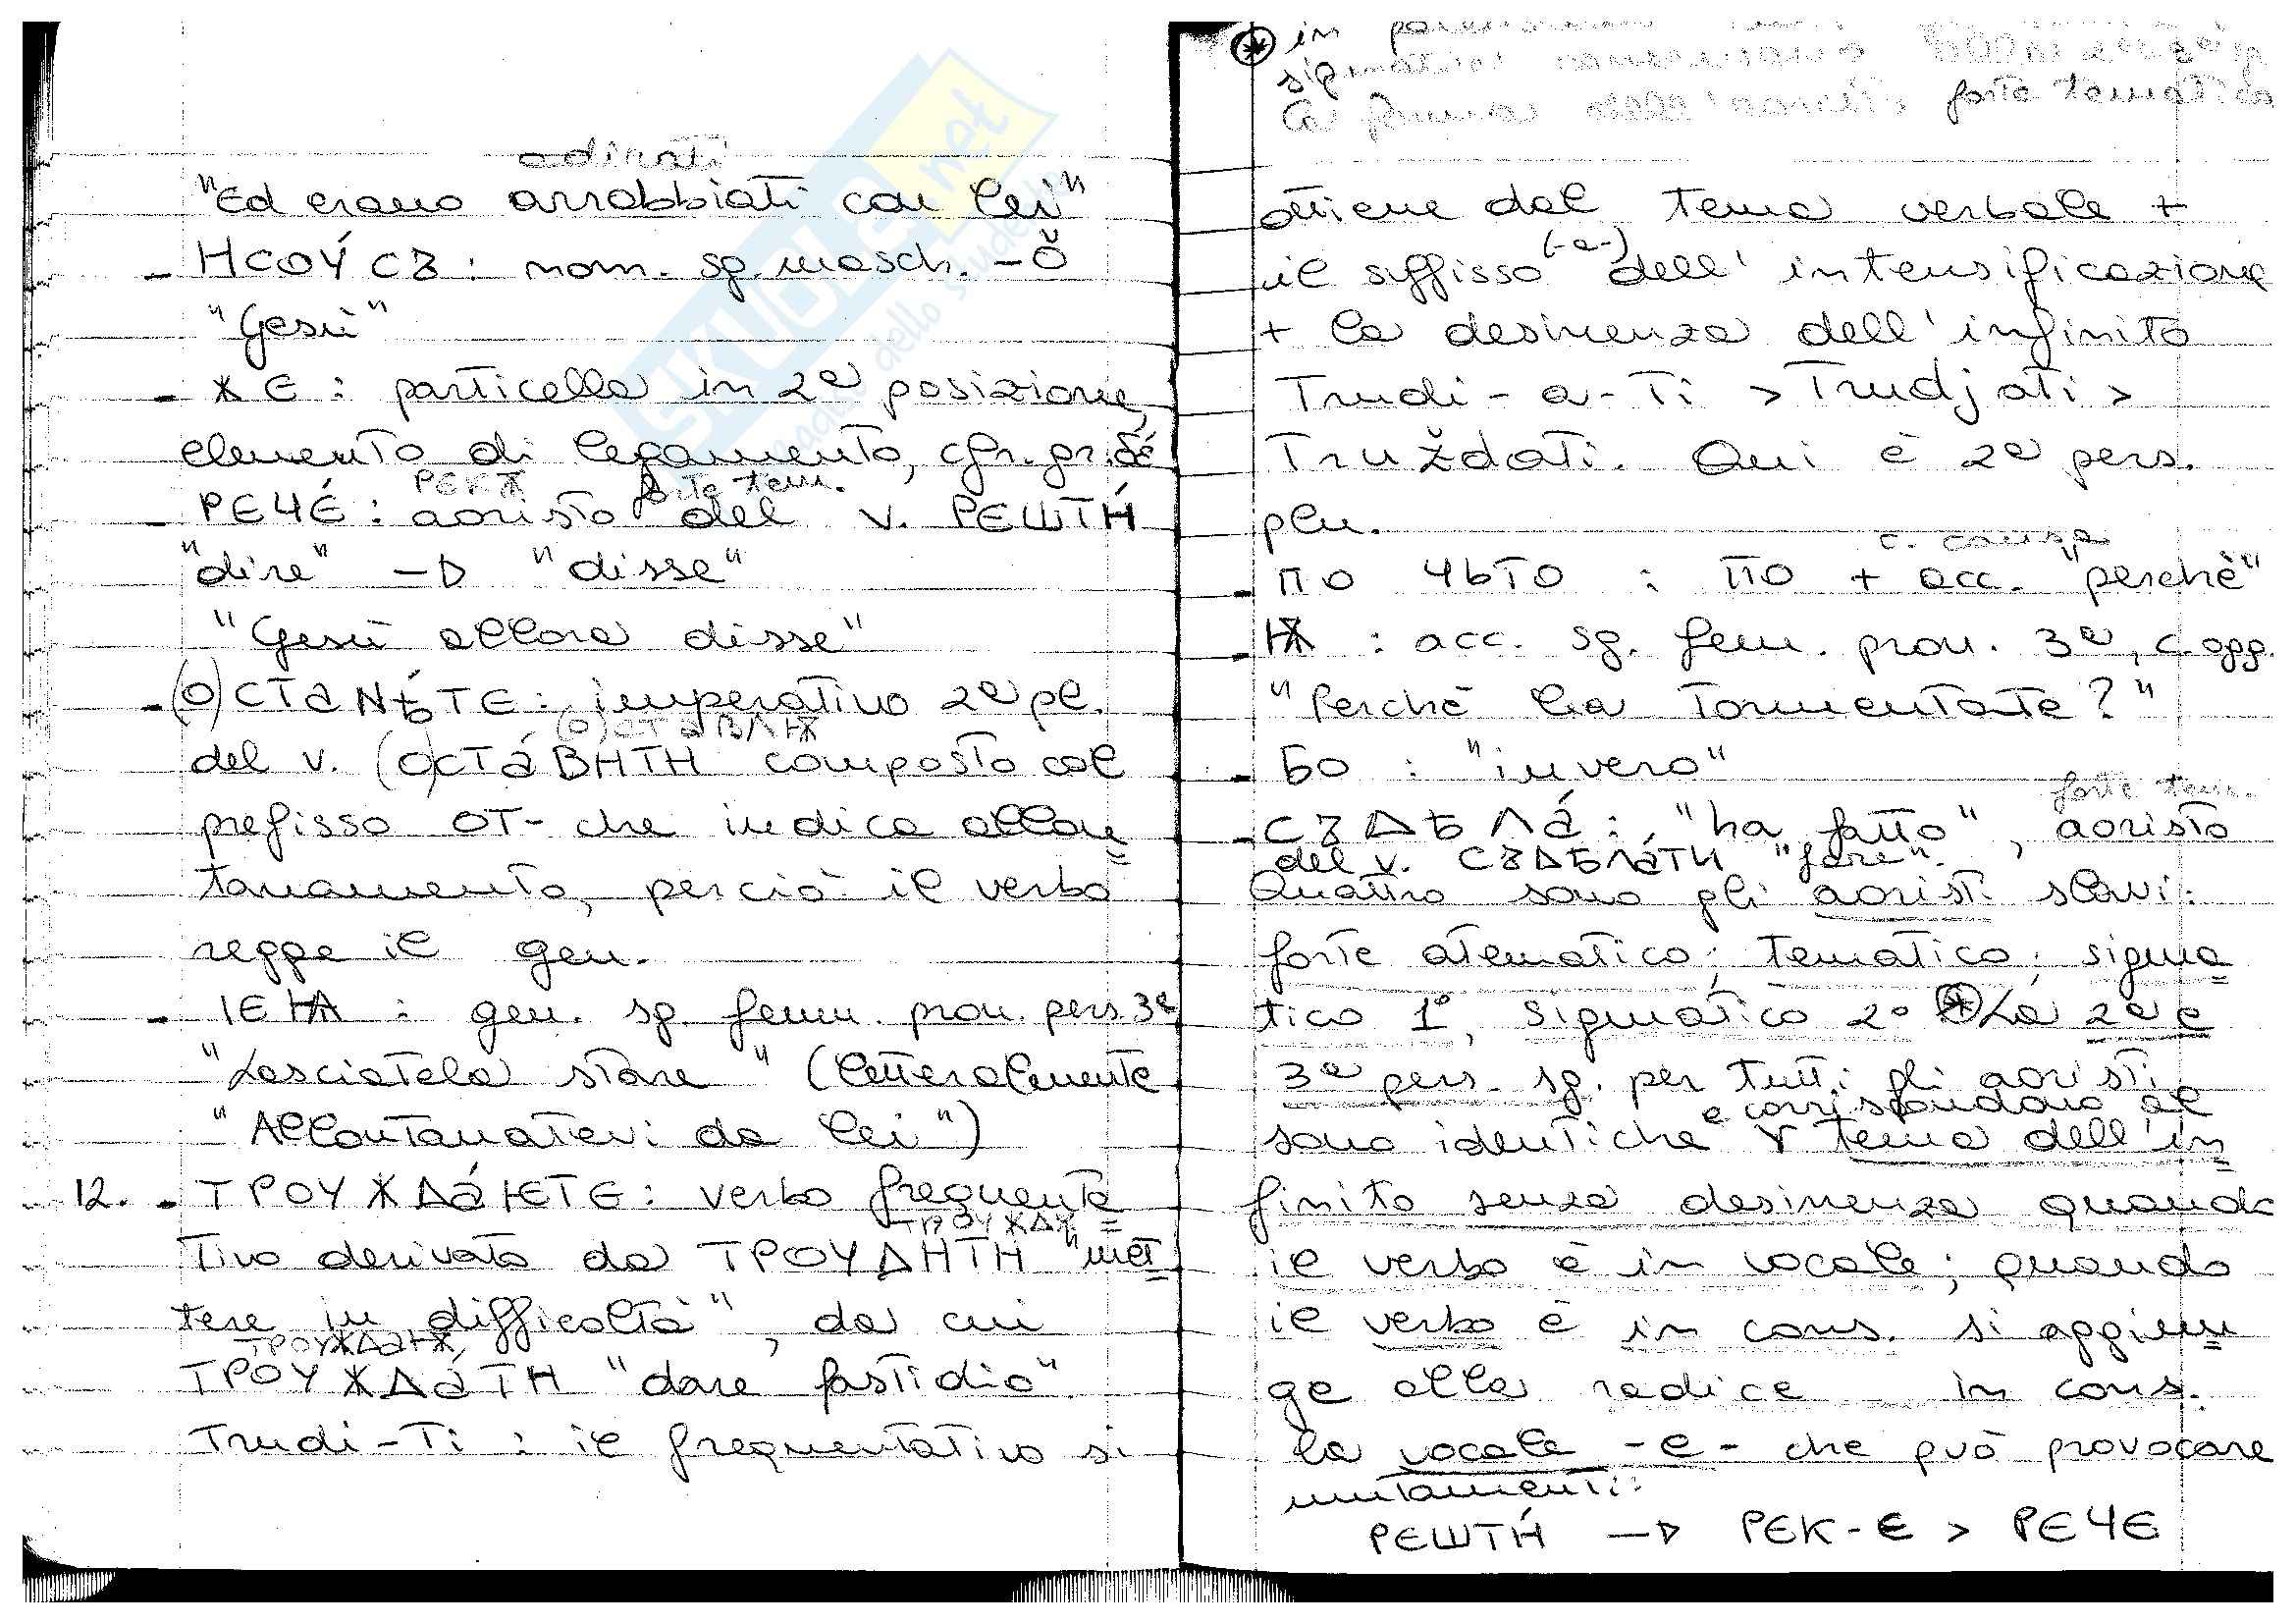 adirati
"Ed erano arrabbiati con lei"
- НСОУ́СЪ : nom. sg. masch. -ŏ
"Gesù"
- ЖЕ : particella in 2ª posizione,
elemento di legamento, cfr. gr. δέ
РЕКѪ forte tem.
- РЕЧЕ́ : aoristo del v. РЕШТН́
"dire" → "disse"
"Gesù allora disse"
- (О)СТАNѢ́ТЕ : imperativo 2ª pl.
(О)СТАВЛѬ
del v. (О)СТА́ВНТН composto col
prefisso ОТ- che indica allon
tanamento, perciò il verbo
regge il gen.
- ІЕѨ : gen. sg. femm. pron. pers. 3ª
"Lasciatela stare" (letteralmente
"Allontanatevi da lei")
12. - ТРОУЖДА́ѤТЕ : verbo frequenta
ТРОУЖДѪ
tivo derivato da ТРОУДНТН "met
tere in difficoltà", da cui
ТРОУЖДАѬ
ТРОУЖДА́ТН "dare fastidio"
Trudi-Ti : il frequentativo si
⊛ in
la forma dell'aoristo forte tematico
ottiene dal tema verbale +
(-a-)
il suffisso dell'intensificazione
+ la desinenza dell'infinito
Trudi-a-Ti > Trudjati >
Truždati. Qui è 2ª pers.
plu.
c. causa
- ПО ЧЬТО : ПО + acc. "perchè"
- Ѭ : acc. sg. fem. pron. 3ª, c. ogg.
"Perchè la tormentate?"
- БО : "invero"
forte tem.
- СЪДѢЛА́ : "ha fatto", aoristo
del v. СЪДѢЛА́ТН "fare".
Quattro sono gli aoristi slavi:
forte atematico; tematico; sigma
tico 1°, sigmatico 2° ⊛ La 2ª e
3ª pers. sg. per tutti gli aoristi
e corrispondono al
sono identiche tema dell'in
finito senza desinenza quando
il verbo è in vocale; quando
il verbo è in cons. si aggiun
ge alla radice in cons.
la vocale -e- che può provocare
mutamenti:
РЕШТН́ → РЕК-Е > РЕЧЕ
SKUOLA.net